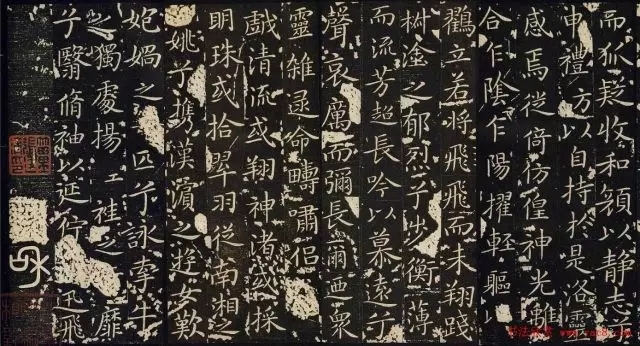 而狐疑收和顔以静志
申禮方以自持於是洛靈
感焉徙倚彷徨神光離
合乍陰乍陽擢輕軀以
鶴立若將飛飛而未翔踐
椒塗之郁烈兮步衡薄
而流芳超長吟以慕遠兮
聲哀厲而彌長爾迺衆
靈雜遝命疇嘯侣
戲清流或翔神渚或採
明珠或拾翠羽從南湘之
姚兮携漢濱之遊女歎
妃媧之匹兮詠牽牛
之獨處揚袿之靡
兮翳脩袖以延佇迅飛